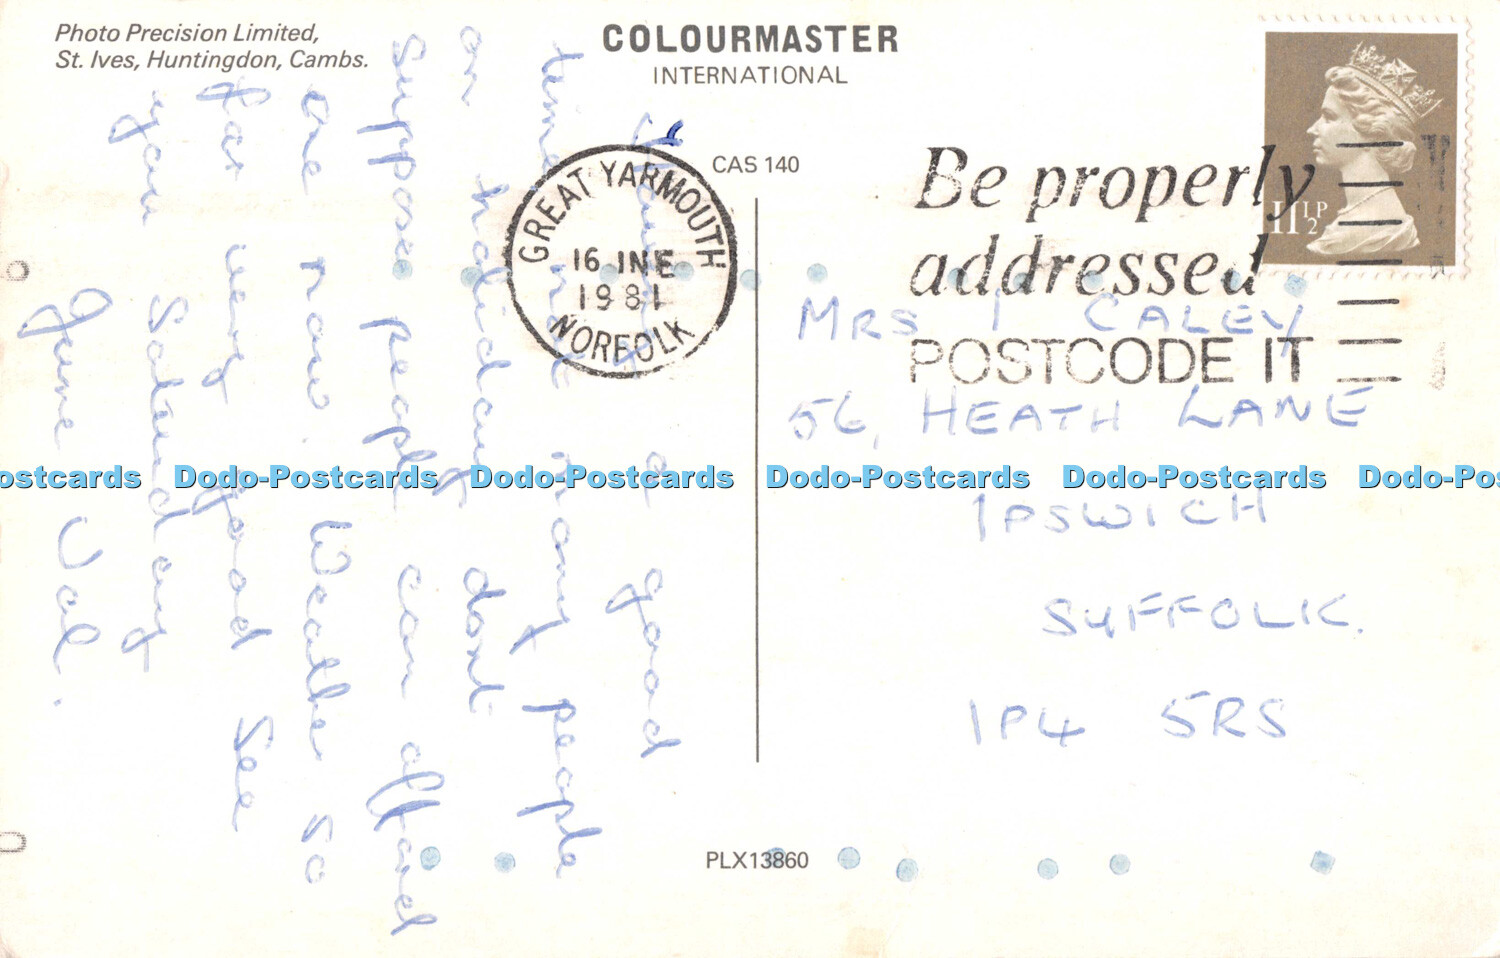 Photo Precision Limited,
St. Ives, Huntingdon, Cambs.
COLOURMASTER
INTERNATIONAL
CAS 140
GREAT YARMOUTH
16 JNE
1981
NORFOLK
Be properly
addressed
POSTCODE IT
11½P
Having a good
time not many people
on holiday dont
suppose people can afford
one now. Weather so
far very good See
you Saturday
June Val.
MRS I CALEY
56, HEATH LANE
IPSWICH
SUFFOLK.
IP4 5RS
PLX13860
ostcards Dodo-Postcards Dodo-Postcards Dodo-Postcards Dodo-Postcards Dodo-Pos